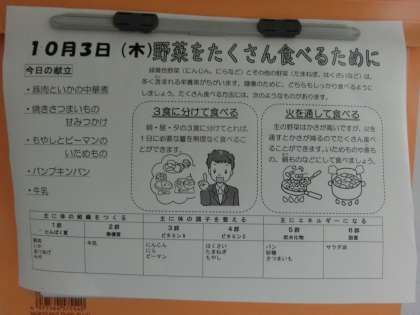 10月3日（木）野菜をたくさん食べるために
今日の献立
緑黄色野菜（にんじん、にらなど）とその他の野菜（たまねぎ、はくさいなど）は、
多く含まれる栄養素がちがいます。健康のために、どちらもしっかり食べるように
しましょう。たくさん食べる方法には、次のようなものがあります。
・豚肉といかの中華煮
・焼きさつまいもの
甘みつかけ
・もやしとピーマンの
いためもの
・パンプキンパン
・牛乳
3食に分けて食べる
朝・昼・夕の3食に分けてとれば、
1日に必要な量を無理なく食べるこ
とができます。
火を通して食べる
生の野菜はかさが高いですが、火を
通すとかさが減るのでたくさん食べ
ることができます。いためものや煮も
の、鍋ものなどにして食べましょう。
主に体の組織をつくる 主に体の調子を整える 主にエネルギーになる
1群 2群 3群 4群 5群 6群
たんぱく質 無機質 ビタミンA ビタミンC 炭水化物 脂質
豚肉 牛乳 にんじん はくさい パン サラダ油
いか にら たまねぎ 砂糖
ピーマン もやし さつまいも